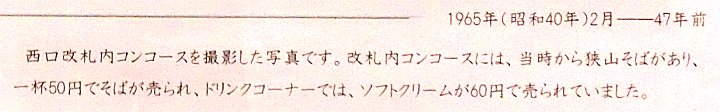 1965年(昭和40年)2月――47年前
西口改札内コンコースを撮影した写真です。改札内コンコースには、当時から狭山そばがあり、
一杯50円でそばが売られ、ドリンクコーナーでは、ソフトクリームが60円で売られていました。